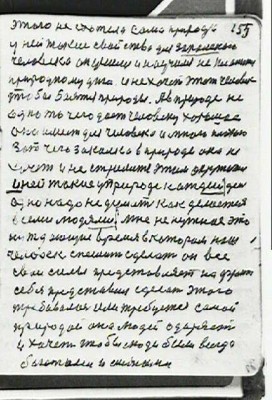 этого не схотела сама природа 155
у ней такие свойства для
человека он умеет и научил не
природному духа и не хочет этот человек
чтобы болеть природы. А в природе не
одно то чего дает человеку хорошего
она имеет для человека и много плохого
вот чего закалка в природе она не
хочет и не стремится этим держаться
у ней такие у природе каждый день
одно надо не думать как делается
всеми людями; мне не нужная это
время в котором наш
человек спешит сделать он все
свои силы представляет на
себя представил сделать этого
требовалося или требуется самой
природой она людей одаряет
и хочет чтобы люди были всегда
богатыми и сильными